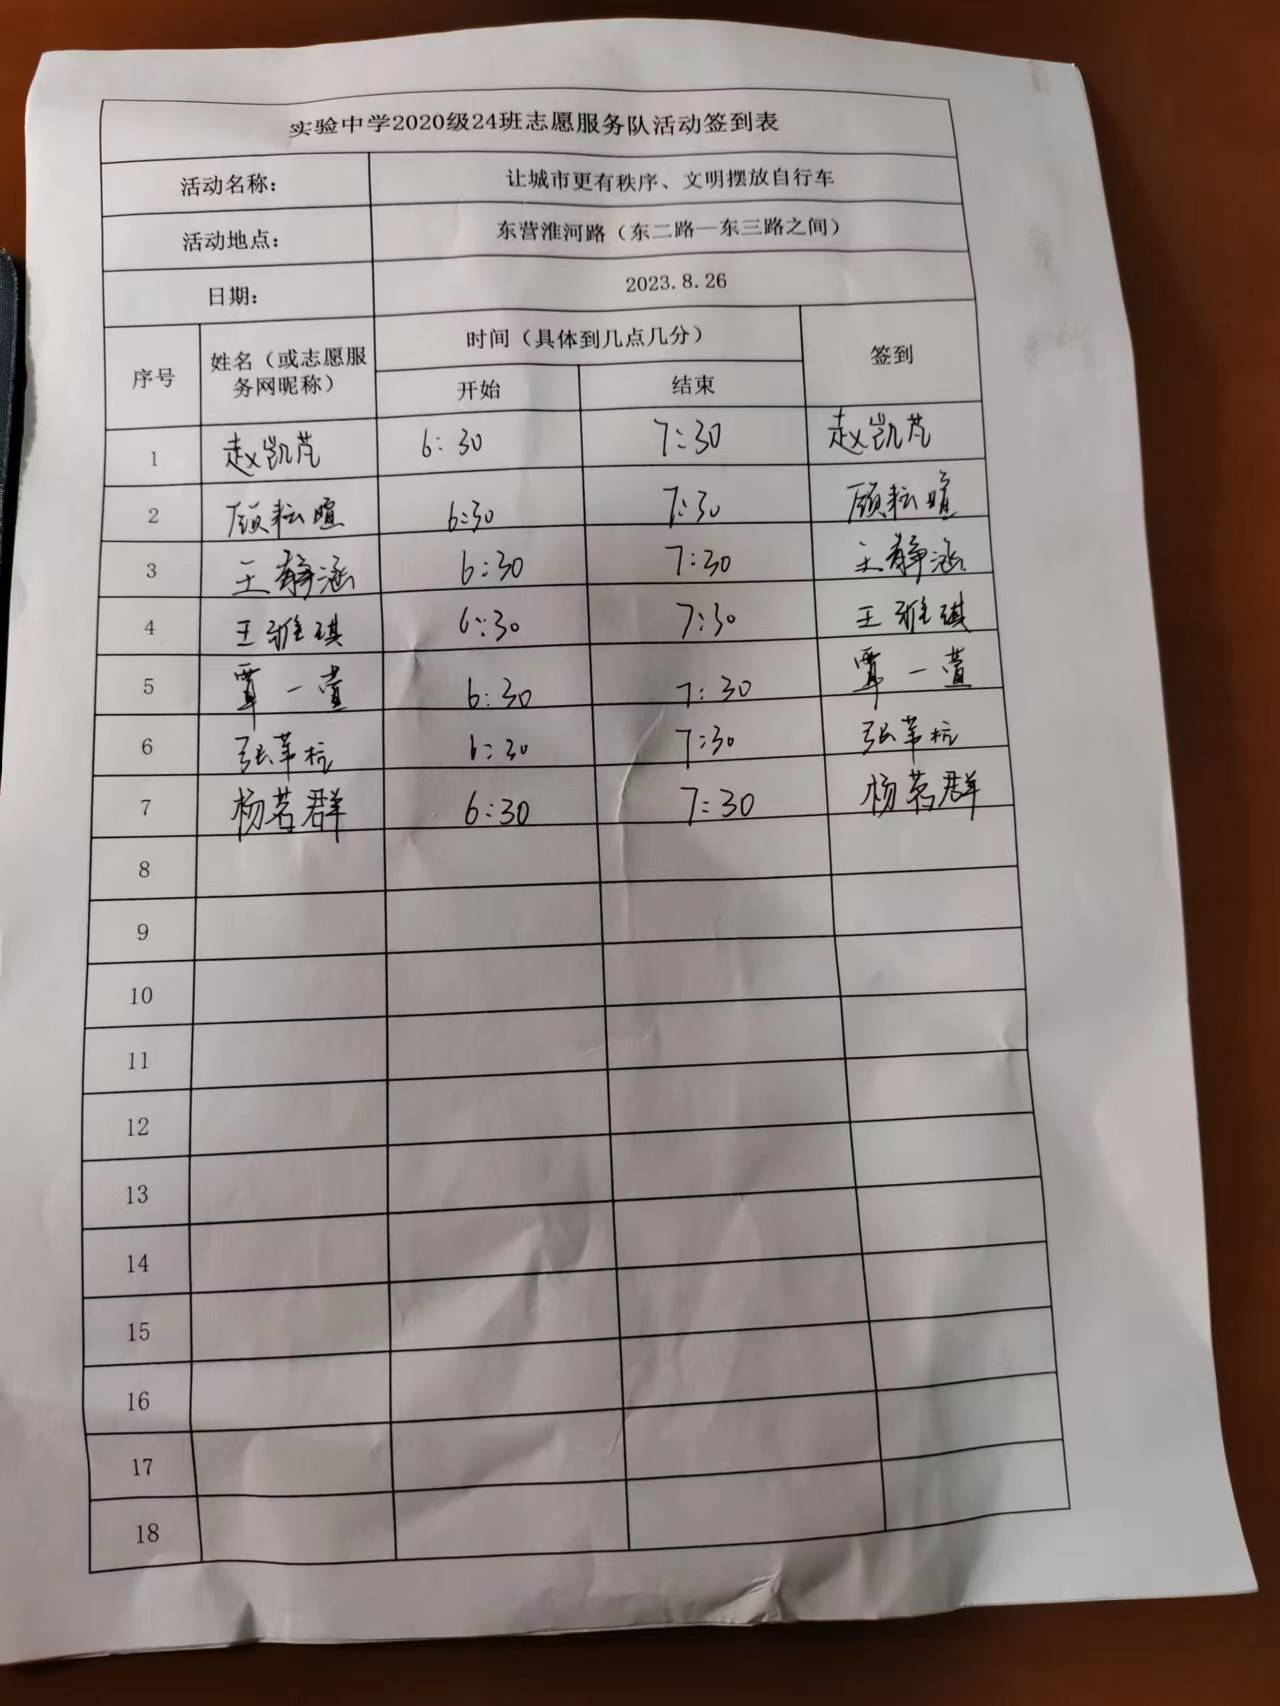 实验中学2020级24班志愿服务队活动签到表
活动名称: 让城市更有秩序、文明摆放自行车
活动地点: 东营淮河路（东二路—东三路之间）
日期: 2023.8.26
序号 姓名（或志愿服务网昵称） 时间（具体到几点几分） 签到
开始 结束
1 赵凯芃 6:30 7:30 赵凯芃
2 顾耘暄 6:30 7:30 顾耘暄
3 王静涵 6:30 7:30 王静涵
4 王雅琪 6:30 7:30 王雅琪
5 覃一萱 6:30 7:30 覃一萱
6 张苇杭 6:30 7:30 张苇杭
7 杨茗群 6:30 7:30 杨茗群
8
9
10
11
12
13
14
15
16
17
18